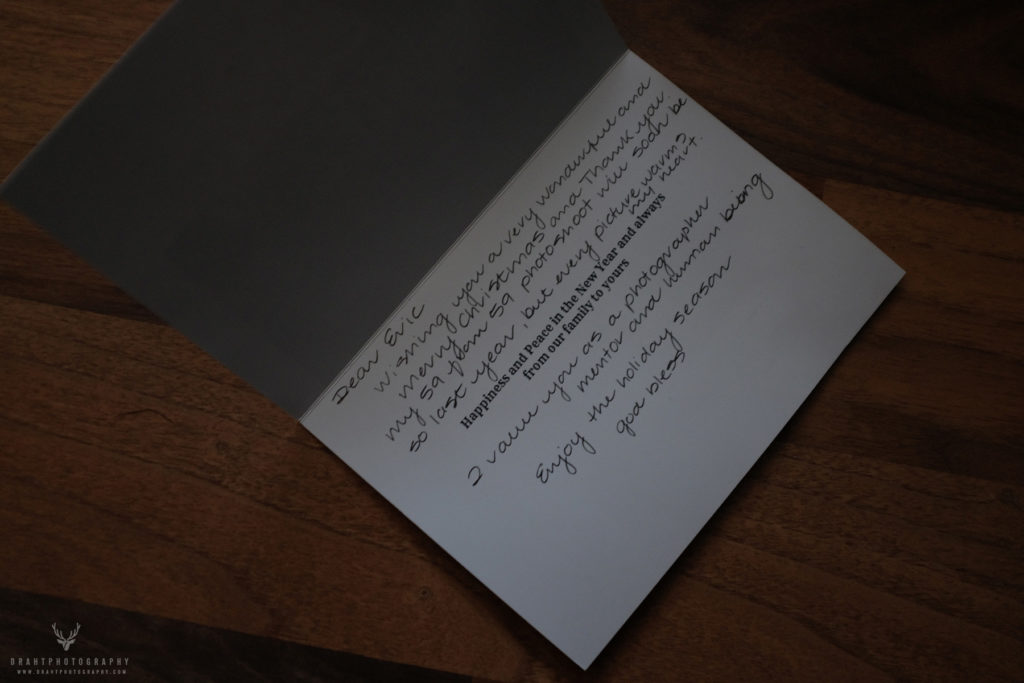 Dear Eric
Wishing you a very wonderful and
merry Christmas and Thank you.
my 59 from 59 photoshoot will soon be
so last year, but every picture warms
my heart.
Happiness and Peace in the New Year and always
from our family to yours
I value you as a photographer
mentor and human being
Enjoy the holiday season
god bless
DRAHTPHOTOGRAPHY
WWW.DRAHTPHOTOGRAPHY.COM